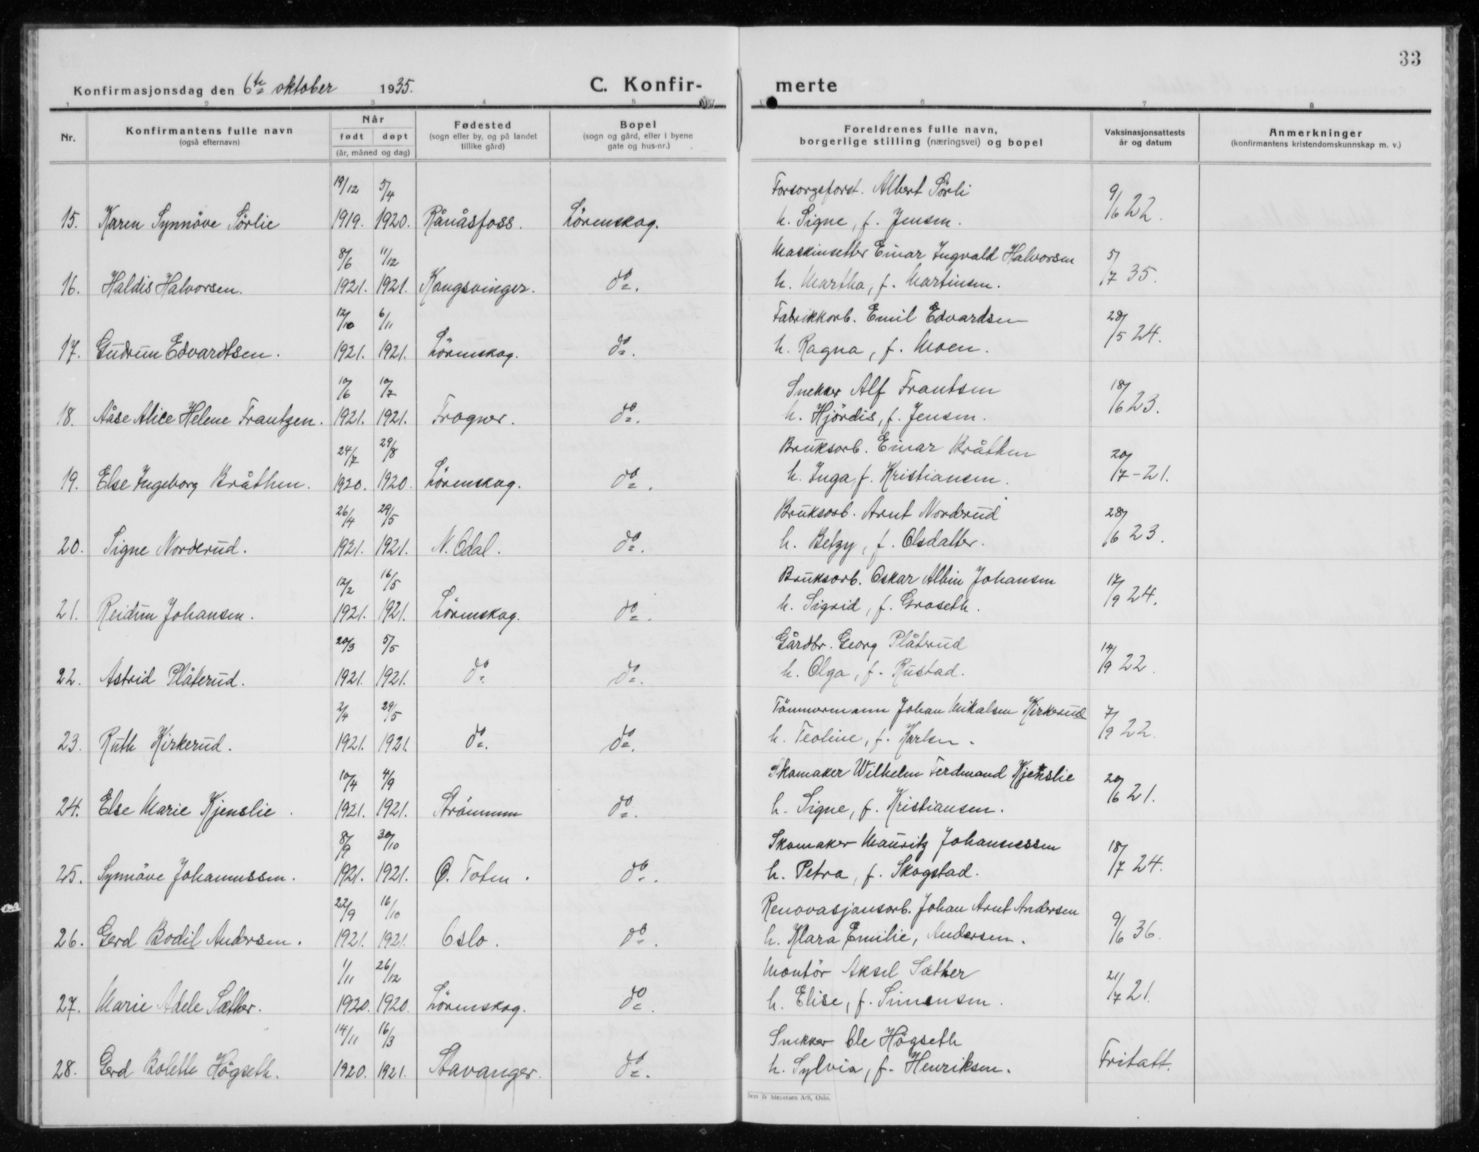 33
Konfirmasjonsdag den 6te oktober 1935. C. Konfirmerte
1 2 3 4 5 6 7 8
Nr. Konfirmantens fulle navn (også efternavn) Når født døpt (år, måned og dag) Fødested (sogn eller by, og på landet tillike gård) Bopel (sogn og gård, eller i byene gate og hus-nr.) Foreldrenes fulle navn, borgerlige stilling (næringsvei) og bopel Vaksinasjonsattests år og datum Anmerkninger (konfirmantens kristendomskunnskap m. v.)
19/12 5/4 Forsorgsforst. Albert Sørli 9/6 22.
15. Karen Synnöve Sørlie 1919. 1920. Rånåsfoss. Lörenskog. h. Signe, f. Jensen.
8/6 11/12 Maskinsetter Einar Ingvald Halvorsen 5/7 35.
16. Haldis Halvorsen. 1921. 1921. Kongsvinger. do. h. Martha, f. Martinsen.
12/10 6/11 Fabrikkarb. Emil Edvardsen 28/5 24.
17. Gudrun Edvardtsen. 1921. 1921. Lörenskog. do. h. Ragna, f. Moen.
10/6 10/7 Snekker Alf Frantsen 18/6 23.
18. Aåse Alice Helene Frantzen. 1921. 1921. Frogner. do. h. Hjördis, f. Jensen.
24/7 29/8 Bruksarb. Einar Bråthen 20/7 - 21.
19. Else Ingeborg Bråthen. 1920. 1920. Lörenskog. do. h. Inga, f. Kristiansen.
26/4 29/5 Bruksarb. Arnt Norderud 28/6 23.
20. Signe Norderud. 1921. 1921. N. Odal. do. h. Betzy, f. Olsdatter.
12/2 16/5 Bruksarb. Oskar Albin Johansen 17/9 24.
21. Reidun Johansen. 1921. 1921. Lörenskog. do. h. Sigrid, f. Groseth.
20/3 5/5 Gårdbr. Georg Plåterud 12/9 22.
22. Astrid Plåterud. 1921. 1921. do. do. h. Olga, f. Rustad.
2/4 29/5 Tömmermann Johan Mikalsen Kirkerud 7/9 22.
23. Ruth Kirkerud. 1921. 1921 do. do. h. Teoline, f. Karlsen.
10/4 4/9 Skomaker Wilhelm Ferdinand Kjenslie 20/6 21.
24. Else Marie Kjenslie. 1921. 1921. Strömmen do. h. Signe, f. Kristiansen.
8/9 30/10 Skomaker Mauritz Johannessen 18/7 24.
25. Synnöve Johannessen. 1921. 1921. Ø. Toten. do. h. Petra, f. Skogstad.
22/9 16/10 Renovasjonsarb. Johan Arnt Andersen 9/6 36.
26. Gerd Bodil Andersen. 1921. 1921. Oslo. do. h. Klara Emilie, Andersen.
1/11 26/12 Montör Aksel Sæther 21/7 21.
27. Marie Adele Sæther. 1920. 1920. Lörenskog. do. h. Elise, f. Simensen.
14/11 16/3 Snekker Ole Högseth
28. Gerd Bolette Högseth. 1920. 1921. Stavanger. do. h. Sylvia, f. Henriksen. Fritatt.